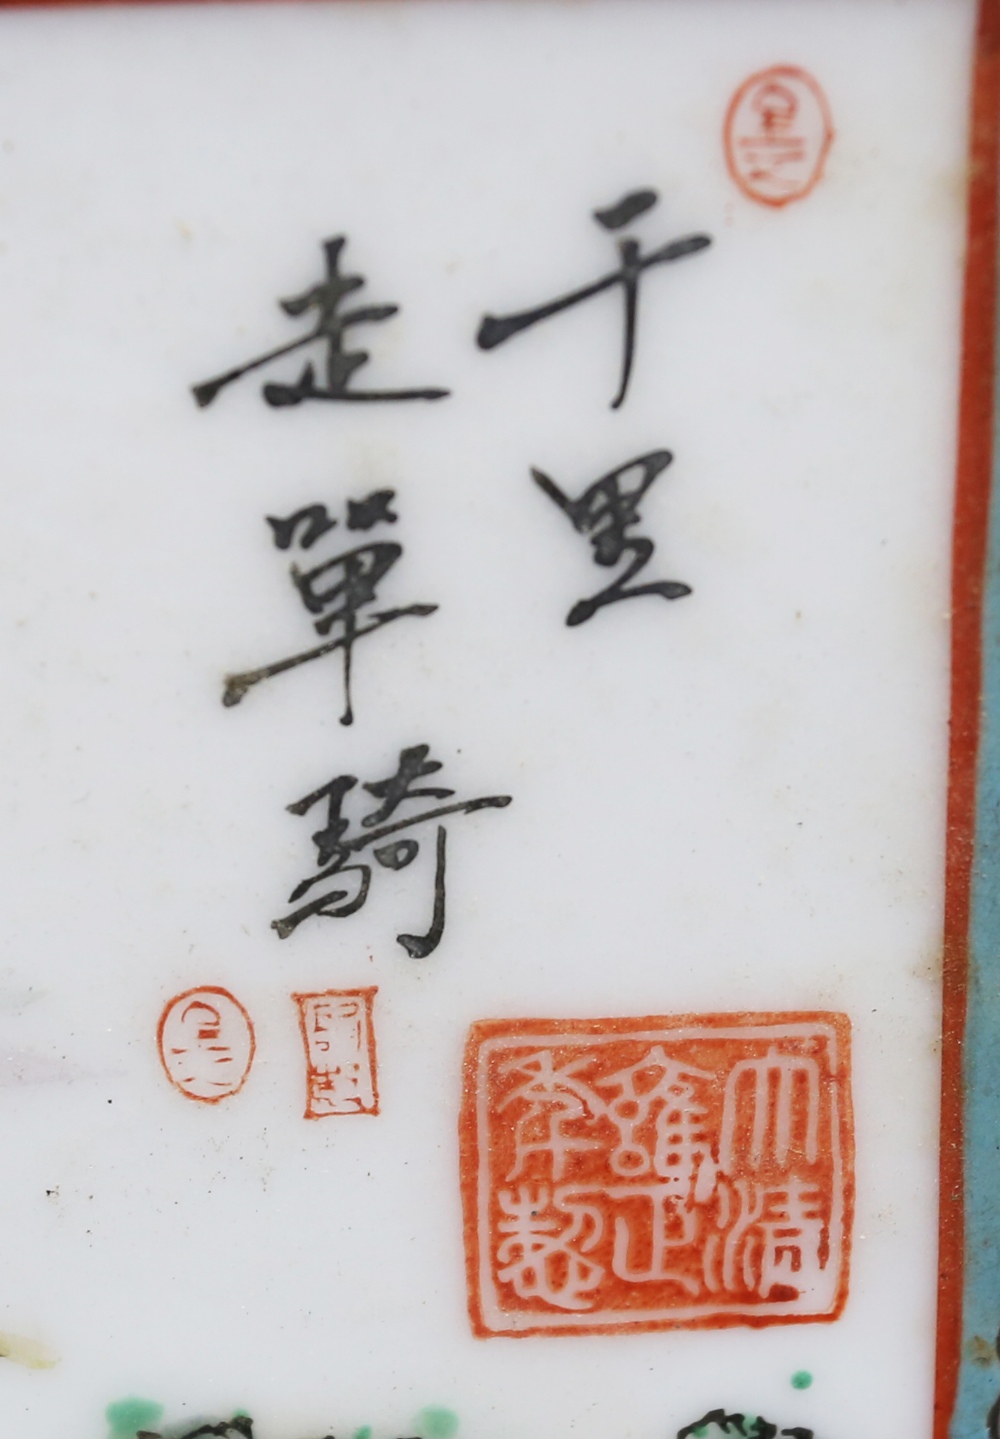 千里
走單騎
大清
雍正
年製